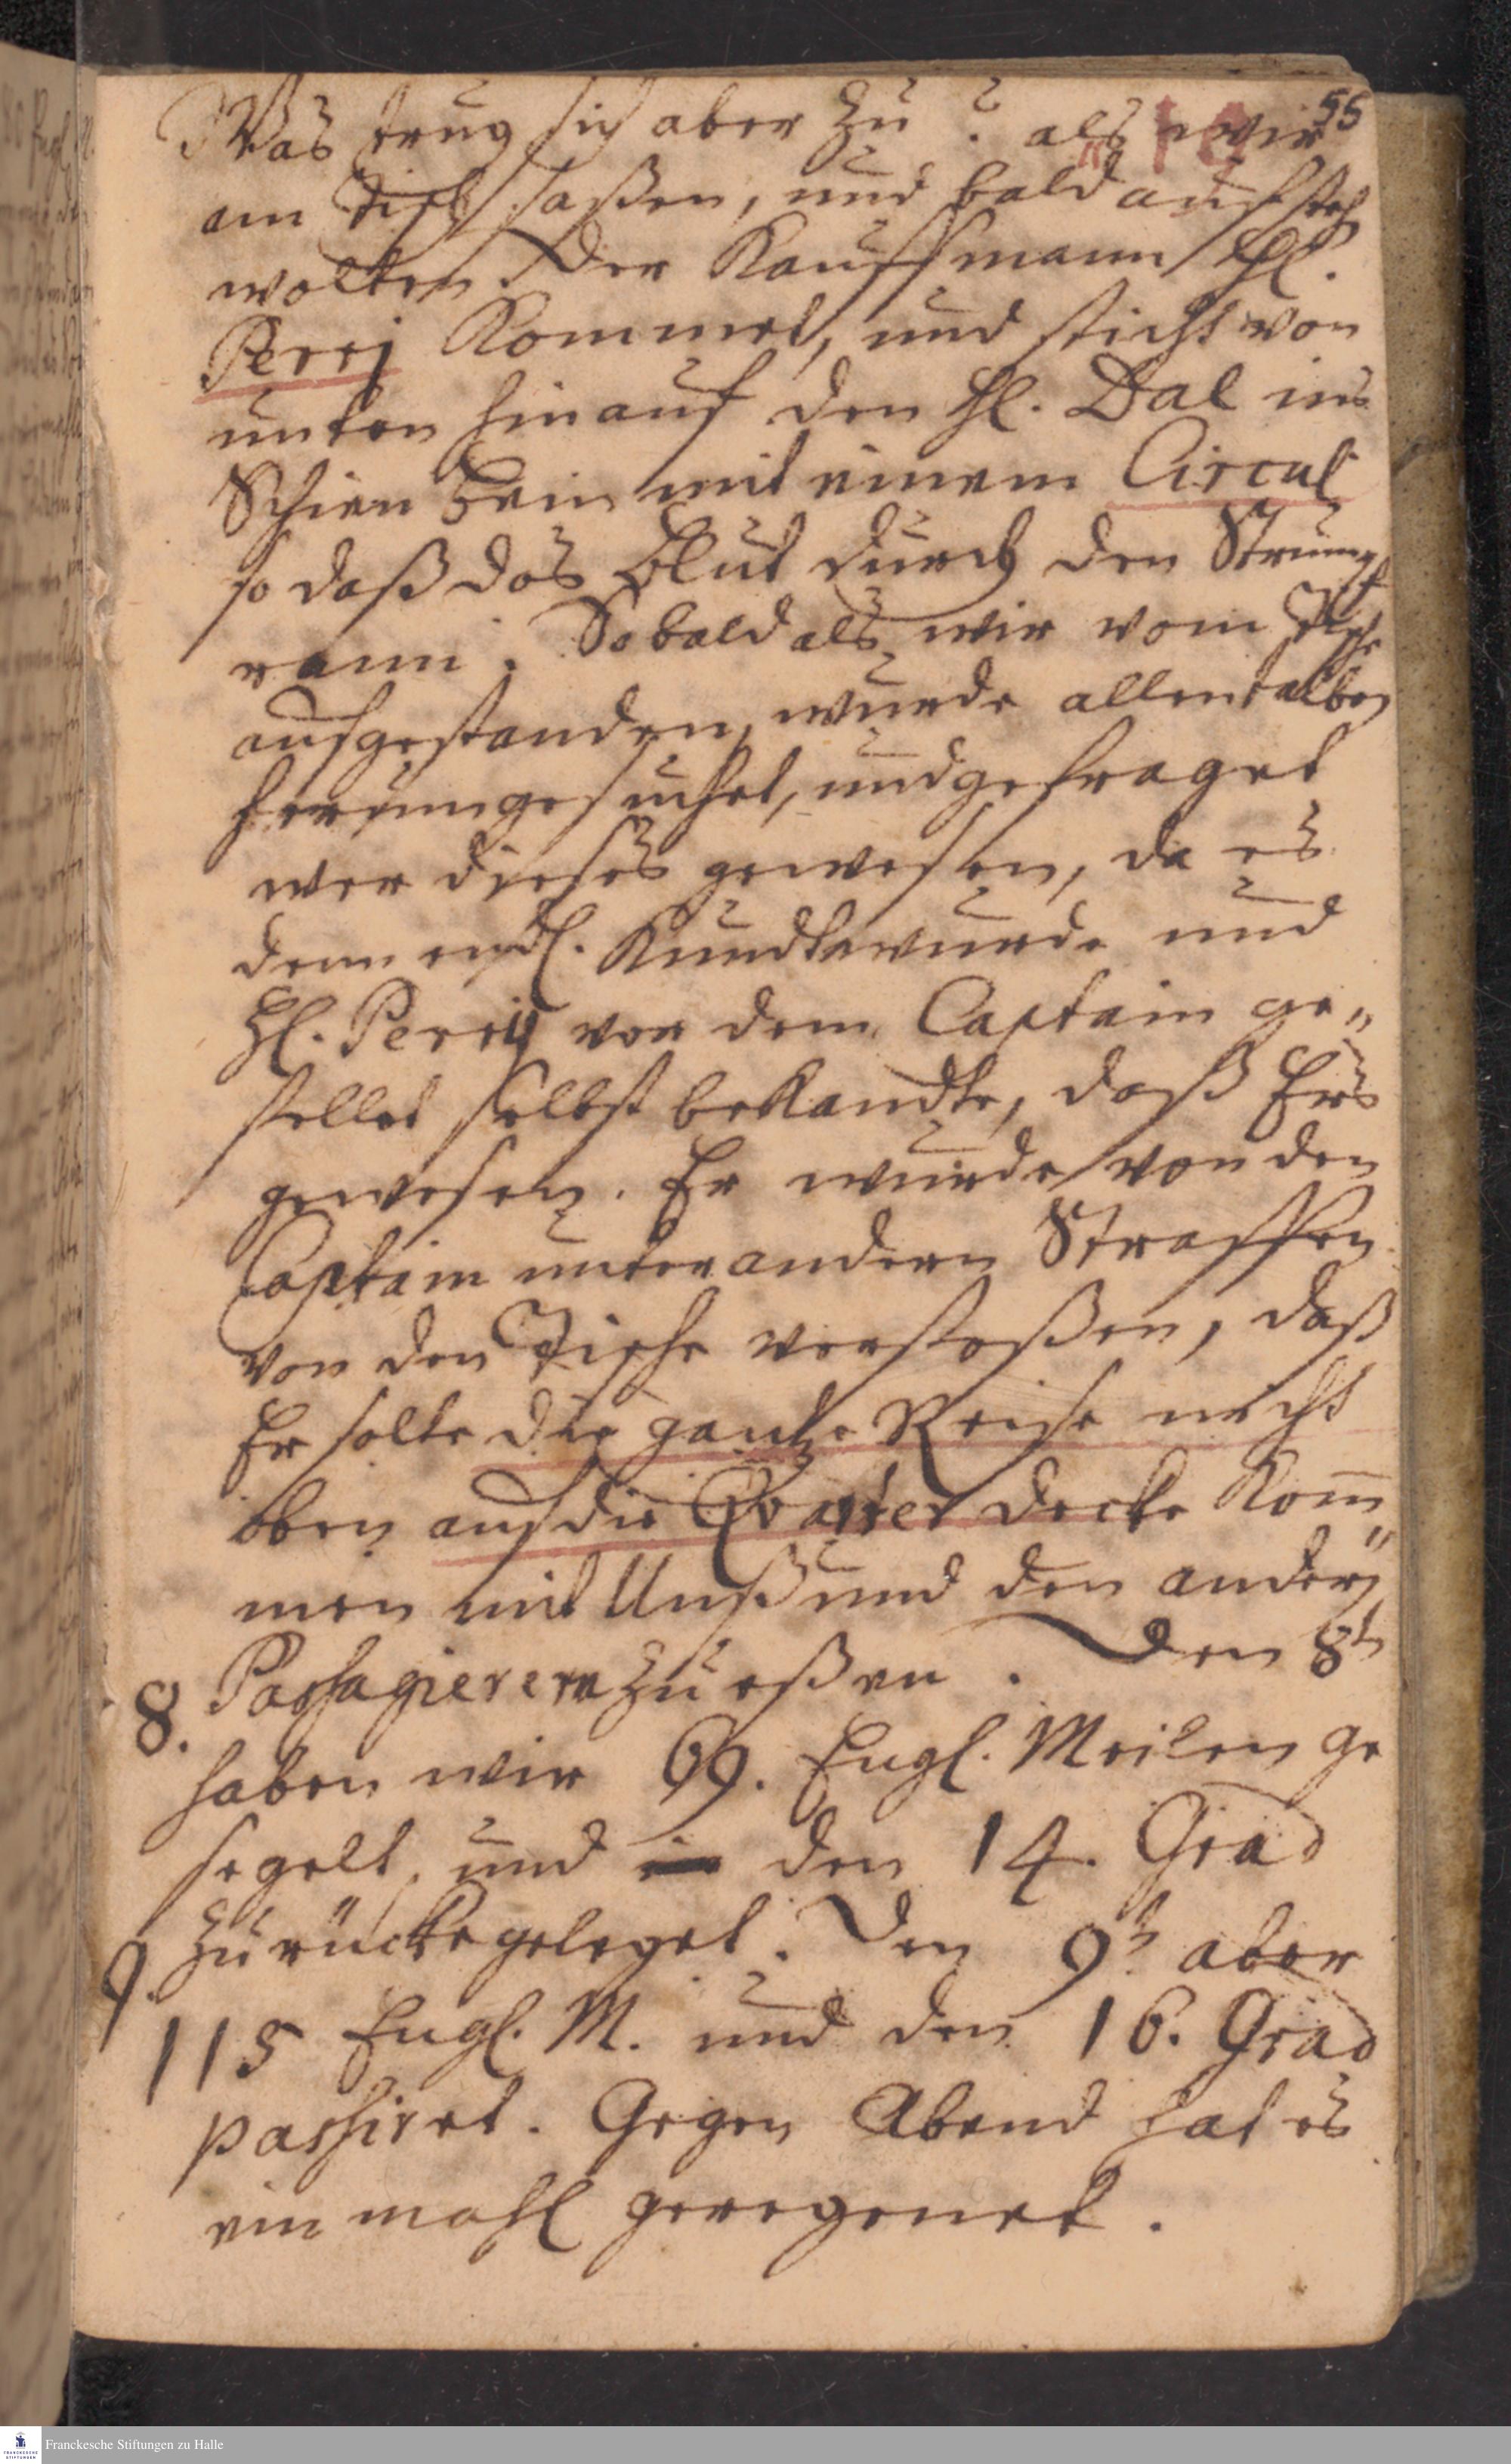 55
Was trug sich aber zu? als wir
am Tisch saßen, und bald aufsteh
wolten. Der Kauffmann H.
Perrj kommet, und sticht von
unten hinauf den H. Dal ins
Schien Bein mit einem Circul
so daß das Blut durch den Strumpf
rann. So bald als wir vom Tische
aufgestanden, wurde allenthalben
herumgesuchet, und gefraget
wer dieses gewesen, da es
denn endl. Kundt wurde und
H. Perry vor dem Captain ge„
stellet selbst bekandte, daß Ers
gewesen. Er wurde von den
Captain unter andern Straffen
von den Tische verstoßen, daß
Er solte die gantze Reise nicht
oben auf die Qvarter decke kom̄„
men mit Unß und den andern
Passagierern zu eßen. Den 8t
8.
haben wir 69. Engl. Meilen ge
segelt, und den 14. Grad
zurückegeleget. Den 9t aber
9.
115 Engl. M. und den 16. Grad
passiret. Gegen Abend hat es
ein mahl geregenet.
Franckesche Stiftungen zu Halle